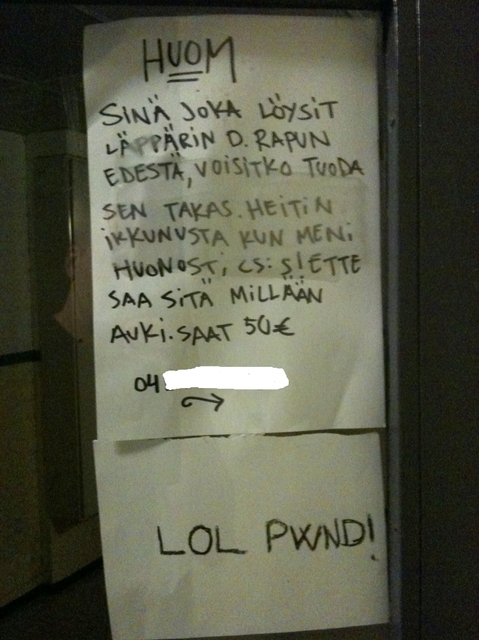 HUOM
SINÄ JOKA LÖYSIT
LÄPPÄRIN D. RAPUN
EDESTÄ, VOISITKO TUODA
SEN TAKAS. HEITIN
IKKUNUSTA KUN MENI
HUONOSTI, CS:S! ETTE
SAA SITÄ MILLÄÄN
AUKI. SAAT 50€
04
LOL PWND!